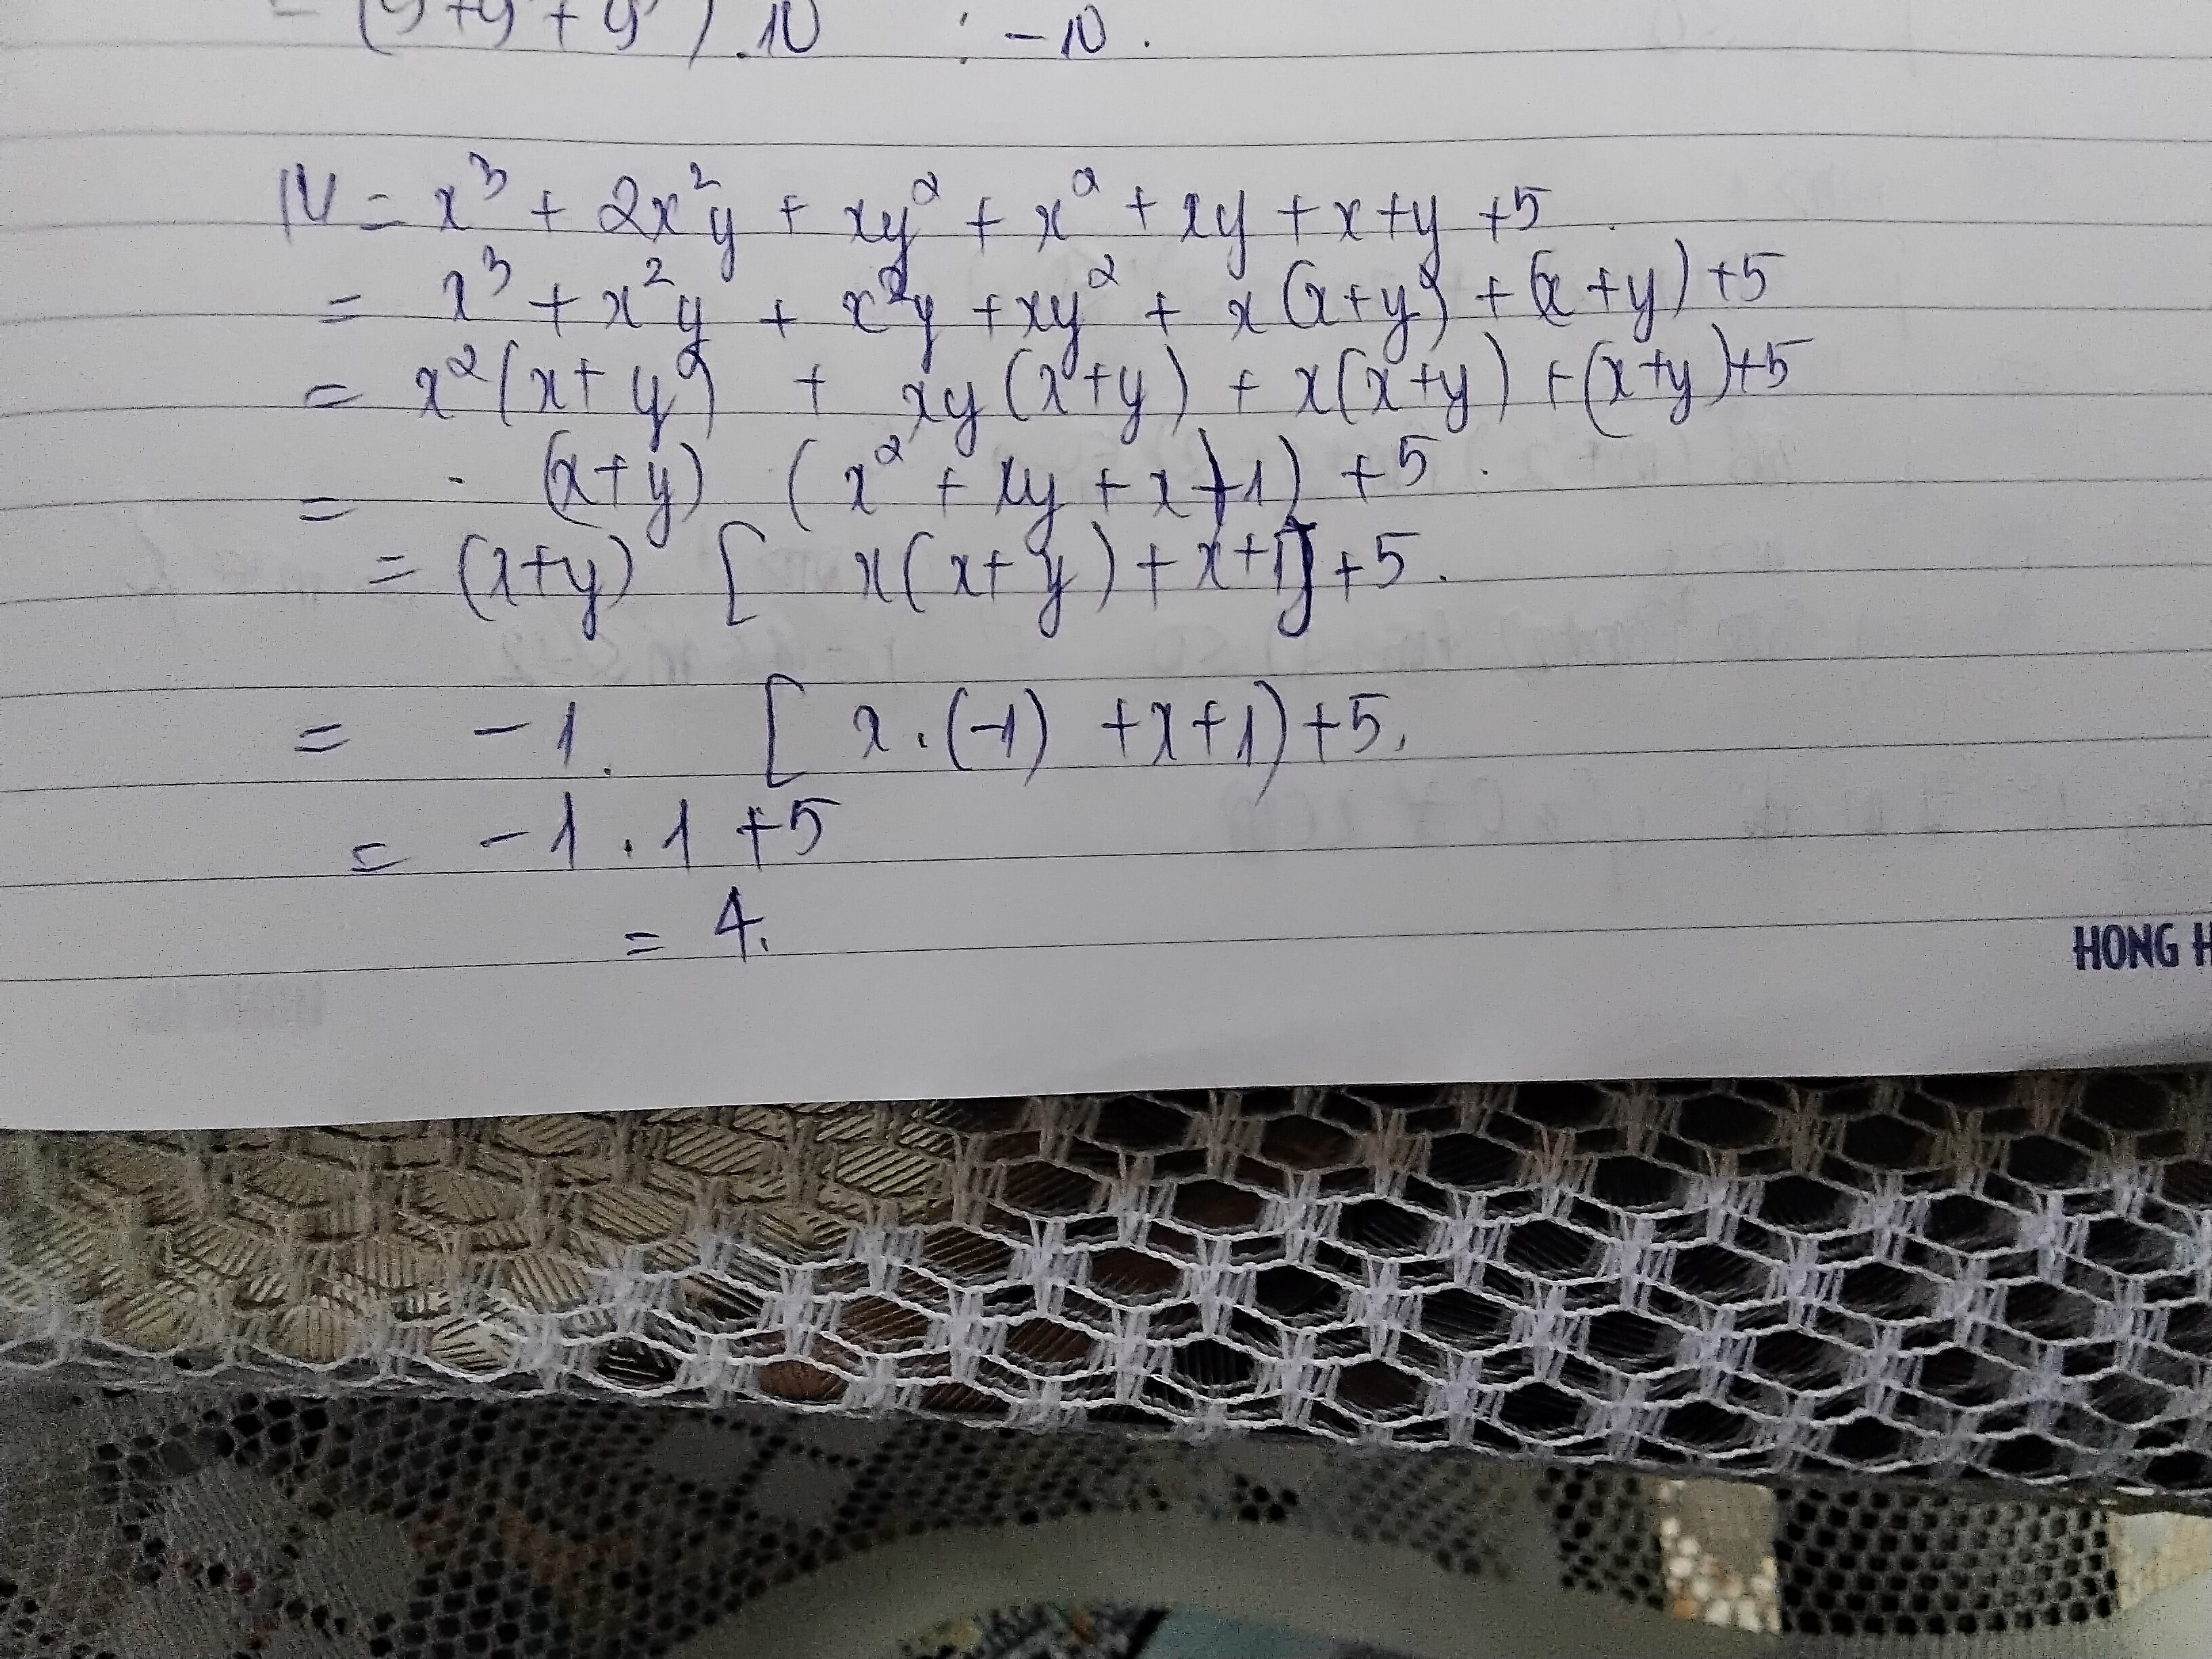 = (y + y + y ) . N : - N .
N = x³ + 2x²y + xy² + x² + xy + x + y + 5
= x³ + x²y + x²y + xy² + x (x + y) + (x + y) + 5
= x² (x + y) + xy (x + y) + x (x + y) + (x + y) + 5
= . (x + y) (x² + xy + x + 1) + 5 .
= (x + y) [ x (x + y) + x + 1] + 5 .
= - 1 . [ x . (-1) + x + 1) + 5 .
= - 1 . 1 + 5
= 4 .
HONG H